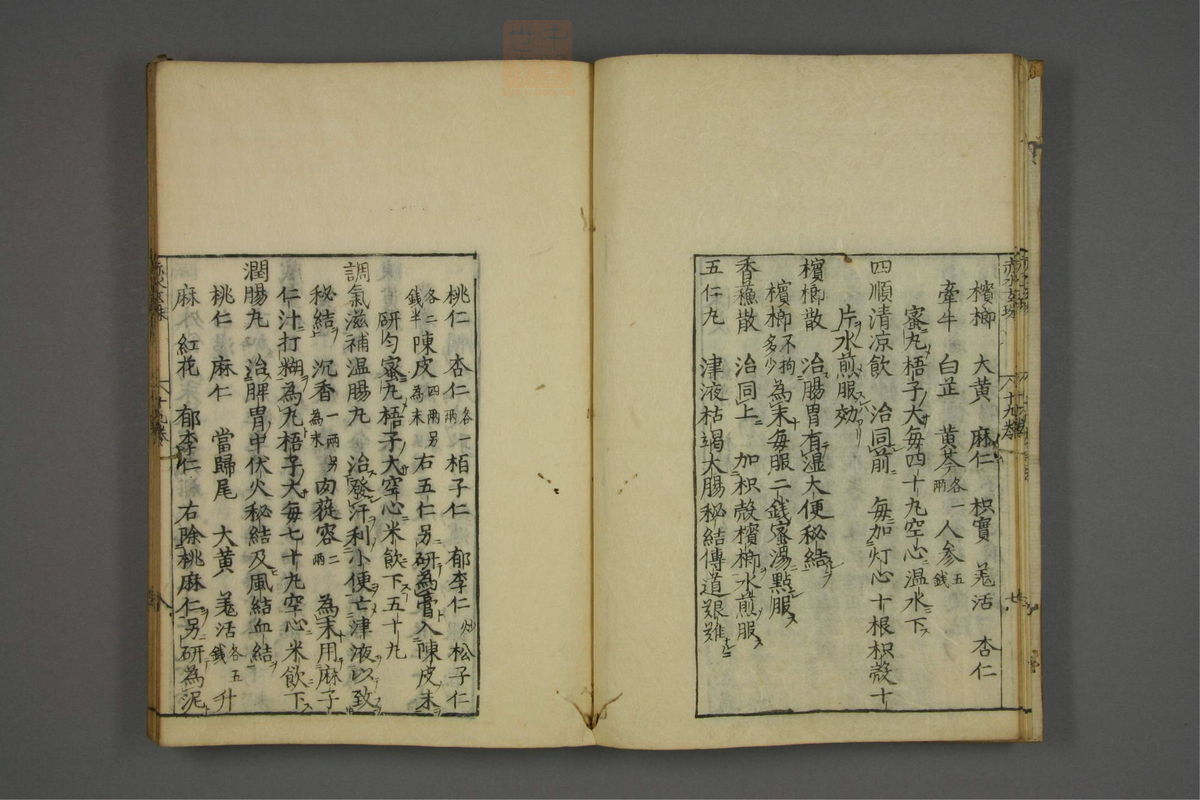 檳榔 大黄 麻仁 枳實 羗活 杏仁
牽牛 白芷 黄芩各一兩 人参五銭
蜜丸梧子大毎四十丸空心温水下
四順清凉飲 治同前 毎加灯心十根枳殻十
片水煎服効
檳榔散 治腸胃有湿大便秘結
檳榔不拘多少為末毎服二銭蜜湯點服
香蘓散 治同上 加枳殻檳榔水煎服
五仁丸 津液枯竭大腸秘結傳道艱難
桃仁 杏仁各一兩 栢子仁 郁李仁炒 松子仁
各二銭半 陳皮四兩另為末 右五仁另研為膏入陳皮末
研匀蜜丸梧子大空心米飲下五十丸
調氣滋補温腸丸 治發汗利小便亡津液以致
秘結 沉香一兩另為末 肉蓯容二兩 為末用麻子
仁汁打糊為丸梧子大毎七十丸空心米飲下
潤腸丸 治脾胃中伏火秘結及風結血結
桃仁 麻仁 當歸尾 大黄 羗活各五銭 升
麻 紅花 郁李仁 右除桃麻仁另研為泥